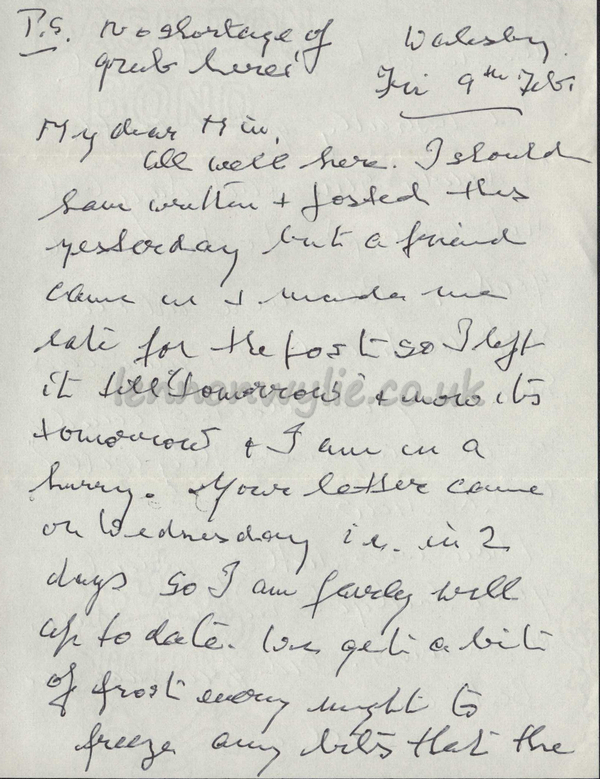 P.S. No shortage of
grub here!
Walesby.
Fri 9th Feb.
My dear Min,
All well here. I should
have written + posted this
yesterday but a friend
came in + made me
late for the post so I left
it till "tomorrow" + now its
tomorrow + I am in a
hurry. Your letter came
on Wednesday i.e. in 2
days so I am fairly well
up to date. We get a bit
of frost every night to
freeze any bits that the
lennonwylie.co.uk